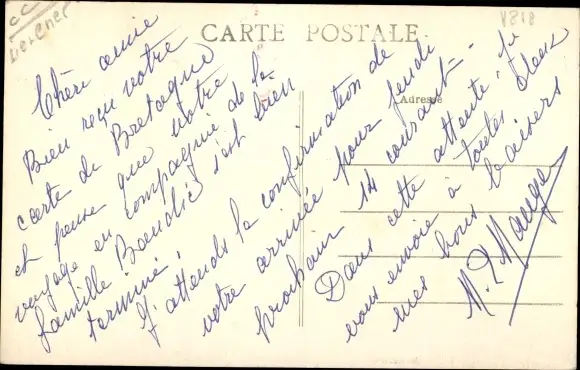 CARTE POSTALE
Adresse
Chère amie
Bien reçu votre
carte de Bretagne
et pense que votre
voyage en compagnie de la
famille s'est bien
terminé.
J'attends la confirmation de
votre arrivée pour jeudi
prochain 14 courant.
Dans cette attente, je
vous envoie à toutes deux
mes bons baisers